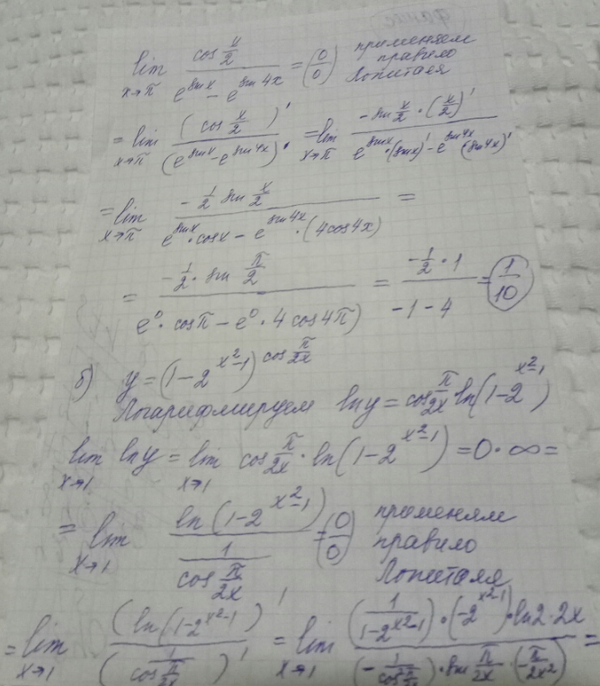 lim x→π cos x/2 / (e^sin x − e^sin 4x) = (0/0) применяем правило Лопиталя
= lim x→π (cos x/2)' / (e^sin x − e^sin 4x)' = lim x→π −sin x/2 · (x/2)' / (e^sin x · (sin x)' − e^sin 4x (sin 4x)')
= lim x→π −1/2 sin x/2 / (e^sin x · cos x − e^sin 4x · (4cos 4x)) =
= −1/2 · sin π/2 / (e^0 · cos π − e^0 · 4 cos 4π) = −1/2 · 1 / (−1 − 4) = 1/10
б) y = (1 − 2^(x²−1))^cos π/2x
Логарифмируем ln y = cos π/2x ln(1 − 2^(x²−1))
lim x→1 ln y = lim x→1 cos π/2x · ln(1 − 2^(x²−1)) = 0 · ∞ =
= lim x→1 ln(1 − 2^(x²−1)) / (1 / cos π/2x) = (0/0) применям правило Лопиталя
= lim x→1 (ln(1 − 2^(x²−1)))' / (1 / cos π/2x)' = lim x→1 (1 / (1 − 2^(x²−1))) · (−2^(x²−1)) · ln 2 · 2x / (− 1 / cos² π/2x) · sin π/2x · (− π/2x²) =